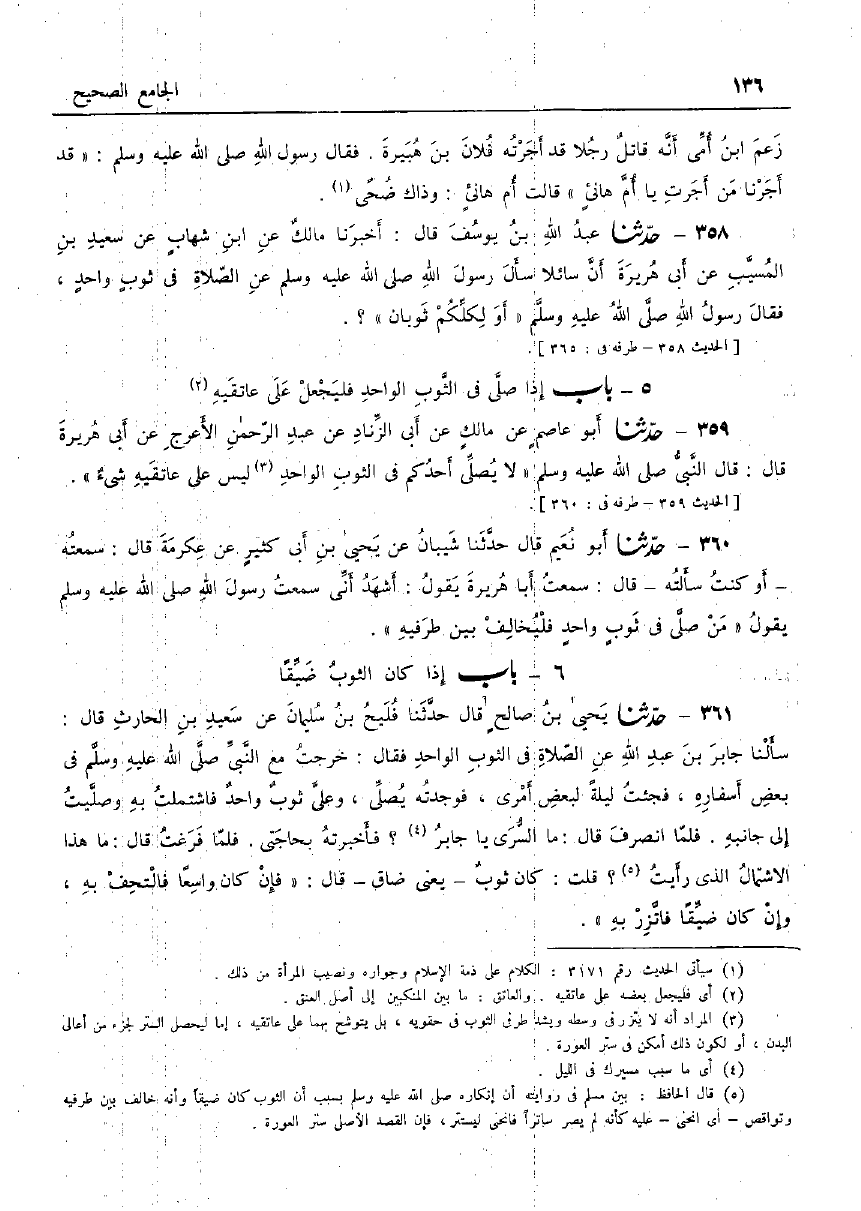 ١٣٦
الجامع الصحيح
زَعمَ ابنُ أُمِّى أَنَّه قاتلٌ رجُلا قد أَجَرْتُه فُلانَ بنَ هُبَيرةَ . فقال رسول اللهِ صلى الله عليه وسلم : « قد
أَجَرْنا مَن أَجَرتِ يا أُمَّ هانئٍ » قالت أُم هانئٍ : وذاك ضُحًى (١) .
٣٥٨ – حدّثنا عبدُ اللهِ بنُ يوسُفَ قال : أَخبرَنا مالكٌ عنِ ابنِ شهابٍ عن سعيدِ بنِ
المُسيَّبِ عن أَبى هُريرَةَ أَنَّ سائلا سأَلَ رسولَ اللهِ صلى الله عليه وسلم عنِ الصّلاةِ فى ثوبٍ واحدٍ ،
فقالَ رسولُ اللهِ صلَّى اللهُ عليهِ وسلَّم « أَوَ لِكلِّكُمْ ثَوبان » ؟ .
[ الحديث ٣٥٨ – طرفه فى : ٣٦٥ ] .
٥ – باب إِذا صلَّى فى الثَّوبِ الواحدِ فليَجْعلْ عَلَى عاتقَيهِ (٢)
٣٥٩ – حدّثنا أَبو عاصمٍ عن مالكٍ عن أَبى الزِّنادِ عن عبدِ الرّحمٰنِ الأَعرجِ عن أَبى هُريرةَ
قال : قال النَّبىُّ صلى الله عليه وسلم « لا يُصلِّى أَحدُكم فى الثوبِ الواحدِ (٣) ليس على عاتقَيهِ شىءٌ » .
[ الحديث ٣٥٩ – طرفه فى : ٣٦٠ ] .
٣٦٠ – حدّثنا أَبو نُعَيمٍ قال حدَّثَنا شَيبانُ عن يَحيىٰ بنِ أَبى كثيرٍ عن عِكرمَةَ قال : سمعتُه
– أَو كنتُ سأَلتُه – قال : سمعتُ أَبا هُريرةَ يَقولُ : أَشهَدُ أَنِّى سمعتُ رسولَ اللهِ صلى الله عليه وسلم
يقولُ « مَنْ صلَّى فى ثَوبٍ واحدٍ فلْيُخالِفْ بين طرَفيهِ » .
٦ – باب إِذا كان الثوبُ ضَيِّقًا
٣٦١ – حدّثنا يَحيىٰ بنُ صالحٍ قال حدَّثَنا فُلَيحُ بنُ سُليمانَ عن سَعيدِ بنِ الحارثِ قال :
سأَلْنا جابرَ بنَ عبدِ اللهِ عنِ الصّلاةِ فى الثوبِ الواحدِ فقال : خرجتُ مع النَّبىِّ صلَّى الله عليهِ وسلَّم فى
بعضِ أَسفارِه ، فجئتُ ليلةً لبعضِ أَمْرى ، فوجدتُه يُصلِّى ، وعلىَّ ثوبٌ واحدٌ فاشتملتُ بهِ وصلَّيتُ
إِلى جانبهِ . فلمّا انصرفَ قال : ما السُّرَى يا جابرُ (٤) ؟ فأَخبرتهُ بحاجَتى . فلمّا فَرَغتُ قال : ما هذا
الاشتمالُ الذى رأَيتُ (٥) ؟ قلت : كان ثوبٌ – يعنى ضاق – قال : « فإِنْ كان واسِعًا فالْتحِفْ بهِ ،
وإِنْ كان ضيِّقًا فاتَّزِرْ بهِ » .
(١) سيأتى الحديث رقم ٣١٧١ : الكلام على ذمة الإسلام وجواره ونصيب المرأة من ذلك .
(٢) أى فليجعل بعضه على عاتقيه . والعاتق : ما بين المنكبين إلى أصل العنق .
(٣) المراد أنه لا يتزر فى وسطه ويشد طرفى الثوب فى حقويه ، بل يتوشح بهما على عاتقيه ، إما ليحصل الستر لجزء من أعالى
البدن ، أو لكون ذلك أمكن فى ستر العورة .
(٤) أى ما سبب مسيرك فى الليل .
(٥) قال الحافظ : بين مسلم فى روايته أن إنكاره صلى الله عليه وسلم بسبب أن الثوب كان ضيقاً وأنه خالف بين طرفيه
وتواقص – أى انحنى – عليه كأنه لم يصر ساتراً فانحنى ليستتر ، فإن القصد الأصلى ستر العورة .